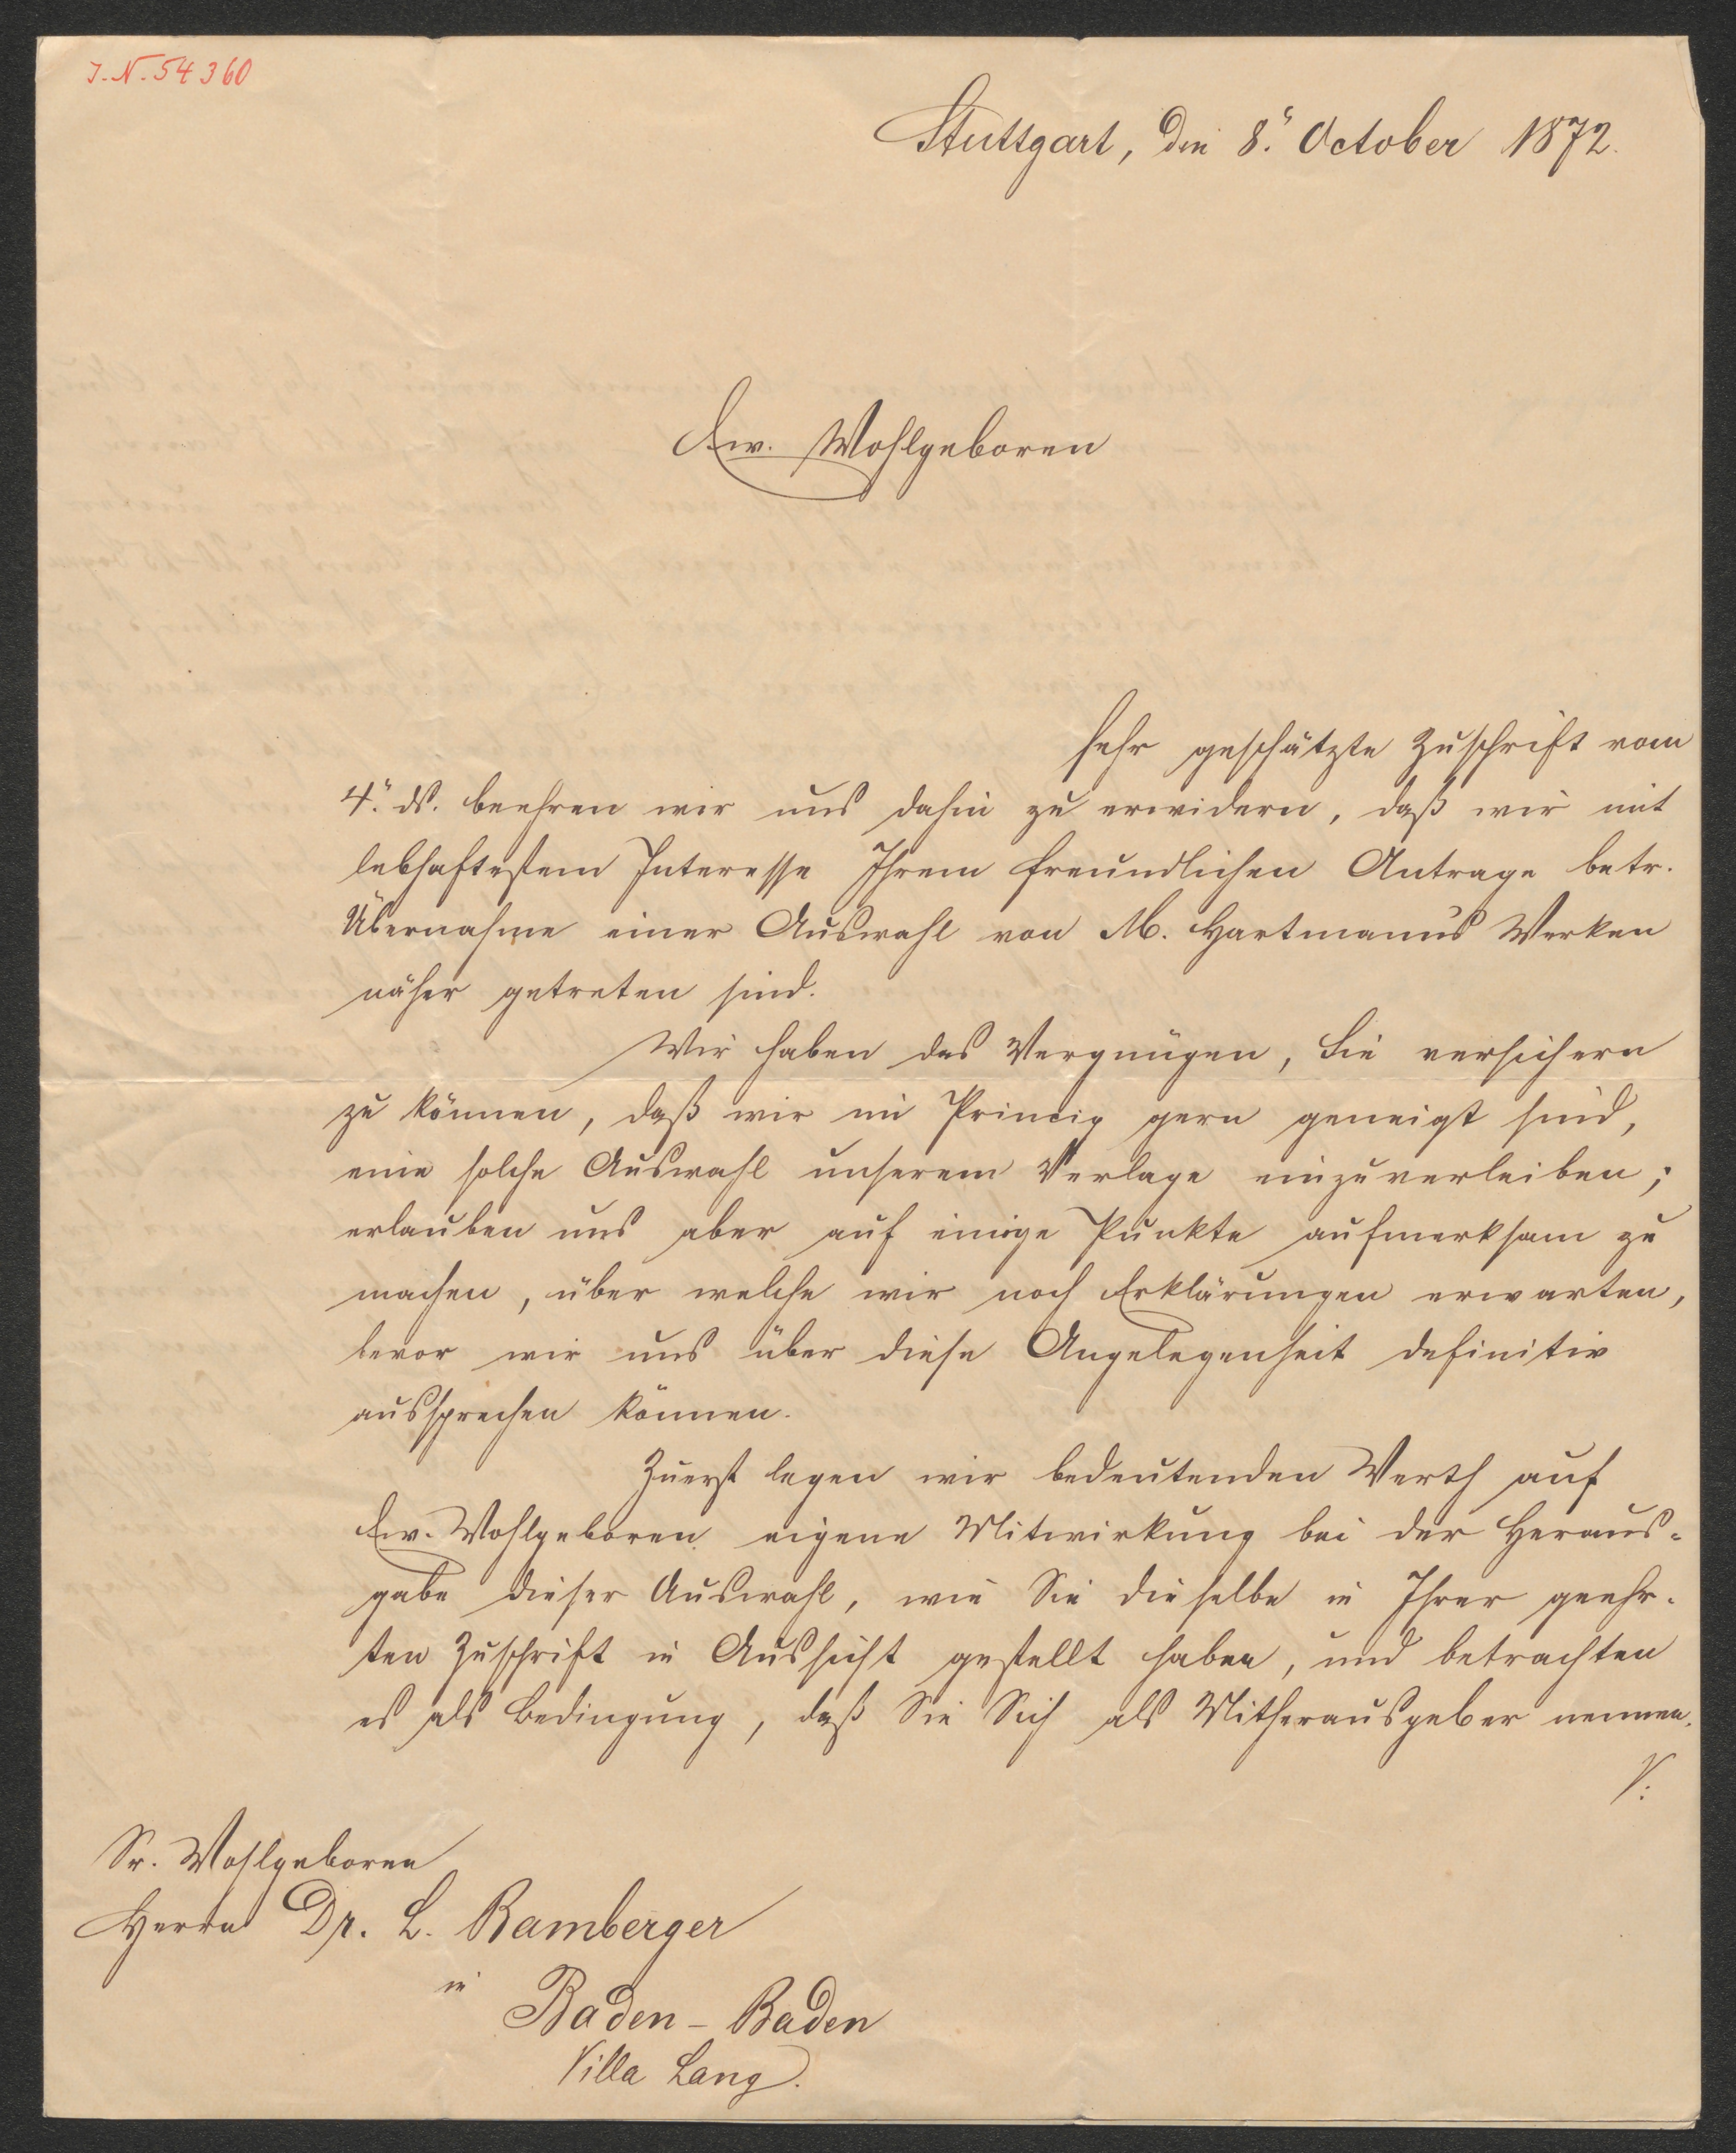 J.-N. 54360
Stuttgart, den 8. October 1872.
Ew. Wohlgeboren
sehr geschätzte Zuschrift vom
4. ds. beehren wir uns dahin zu erwidern, daß wir mit
lebhaftestem Interesse Ihrem freundlichen Antrage betr.
Übernahme einer Auswahl von M. Hartmanns Werken
näher getreten sind.
Wir haben das Vergnügen, Sie versichern
zu können, daß wir im Princip gern geneigt sind,
eine solche Auswahl unserem Verlage einzuverleiben;
erlauben uns aber auf einige Punkte aufmerksam zu
machen, über welche wir noch Erklärungen erwarten,
bevor wir uns über diese Angelegenheit definitiv
aussprechen können.
Zuerst legen wir bedeutenden Werth auf
Ew. Wohlgeboren eigene Mitwirkung bei der Heraus-
gabe dieser Auswahl, wie Sie dieselbe in Ihrer geehr-
ten Zuschrift in Aussicht gestellt haben, und betrachten
es als Bedingung, daß Sie Sich als Mitherausgeber nennen.
Sr. Wohlgeboren
Herrn Dr. L. Bamberger
in
Baden-Baden
Villa Lang.